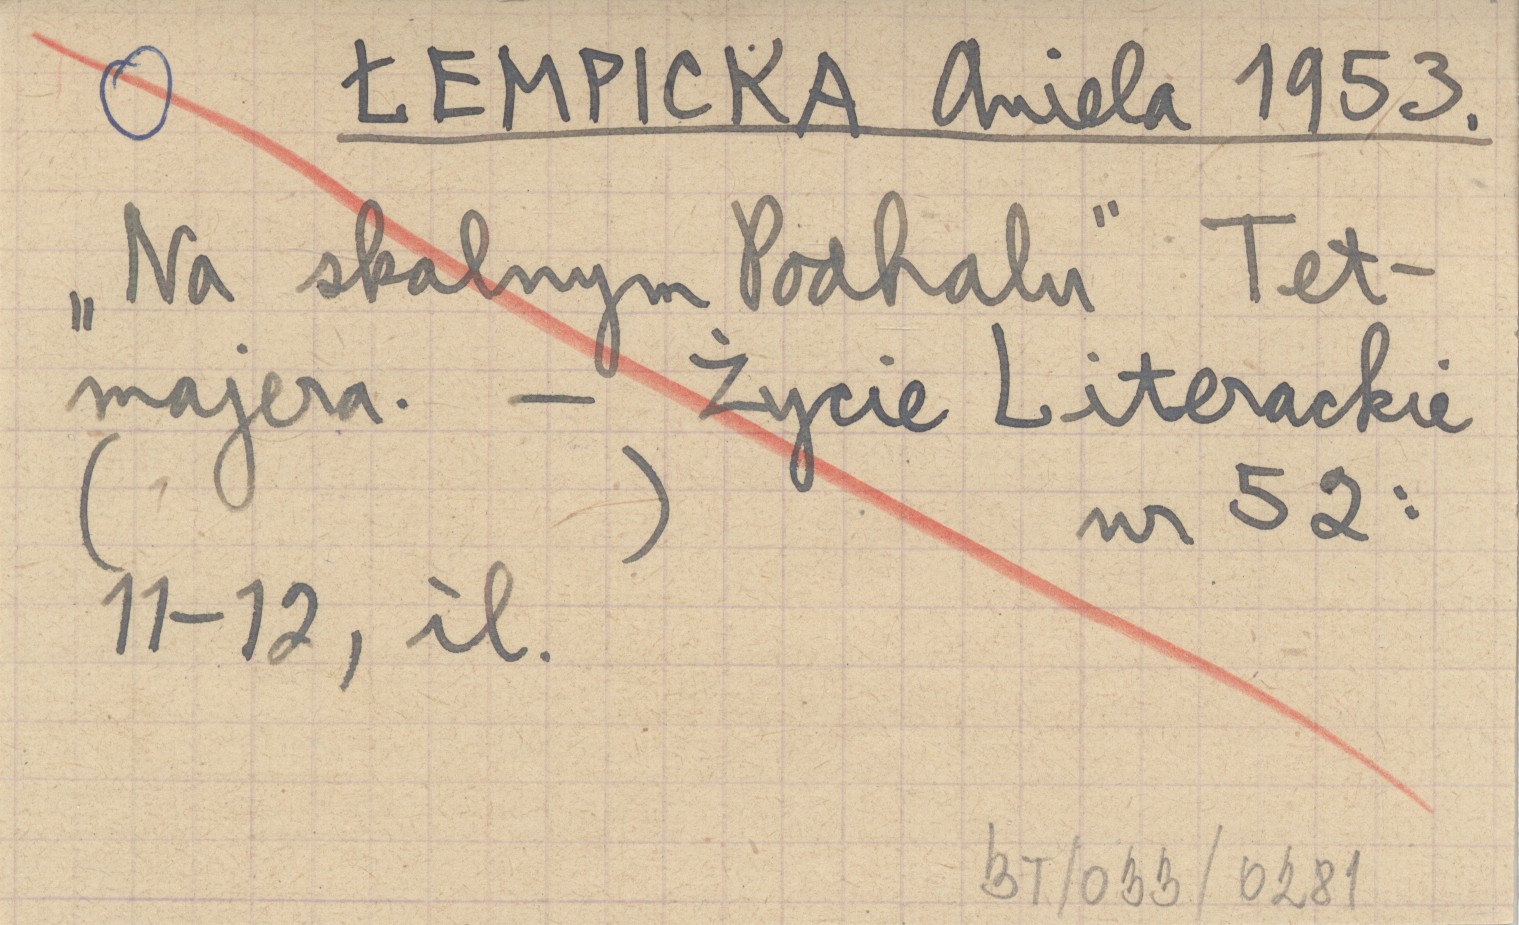 ŁEMPICKA Aniela 1953.
„Na skalnym Podhalu" Tet-
majera. – Życie Literackie
( ) nr 52:
11-12, il.
BT/033/0281